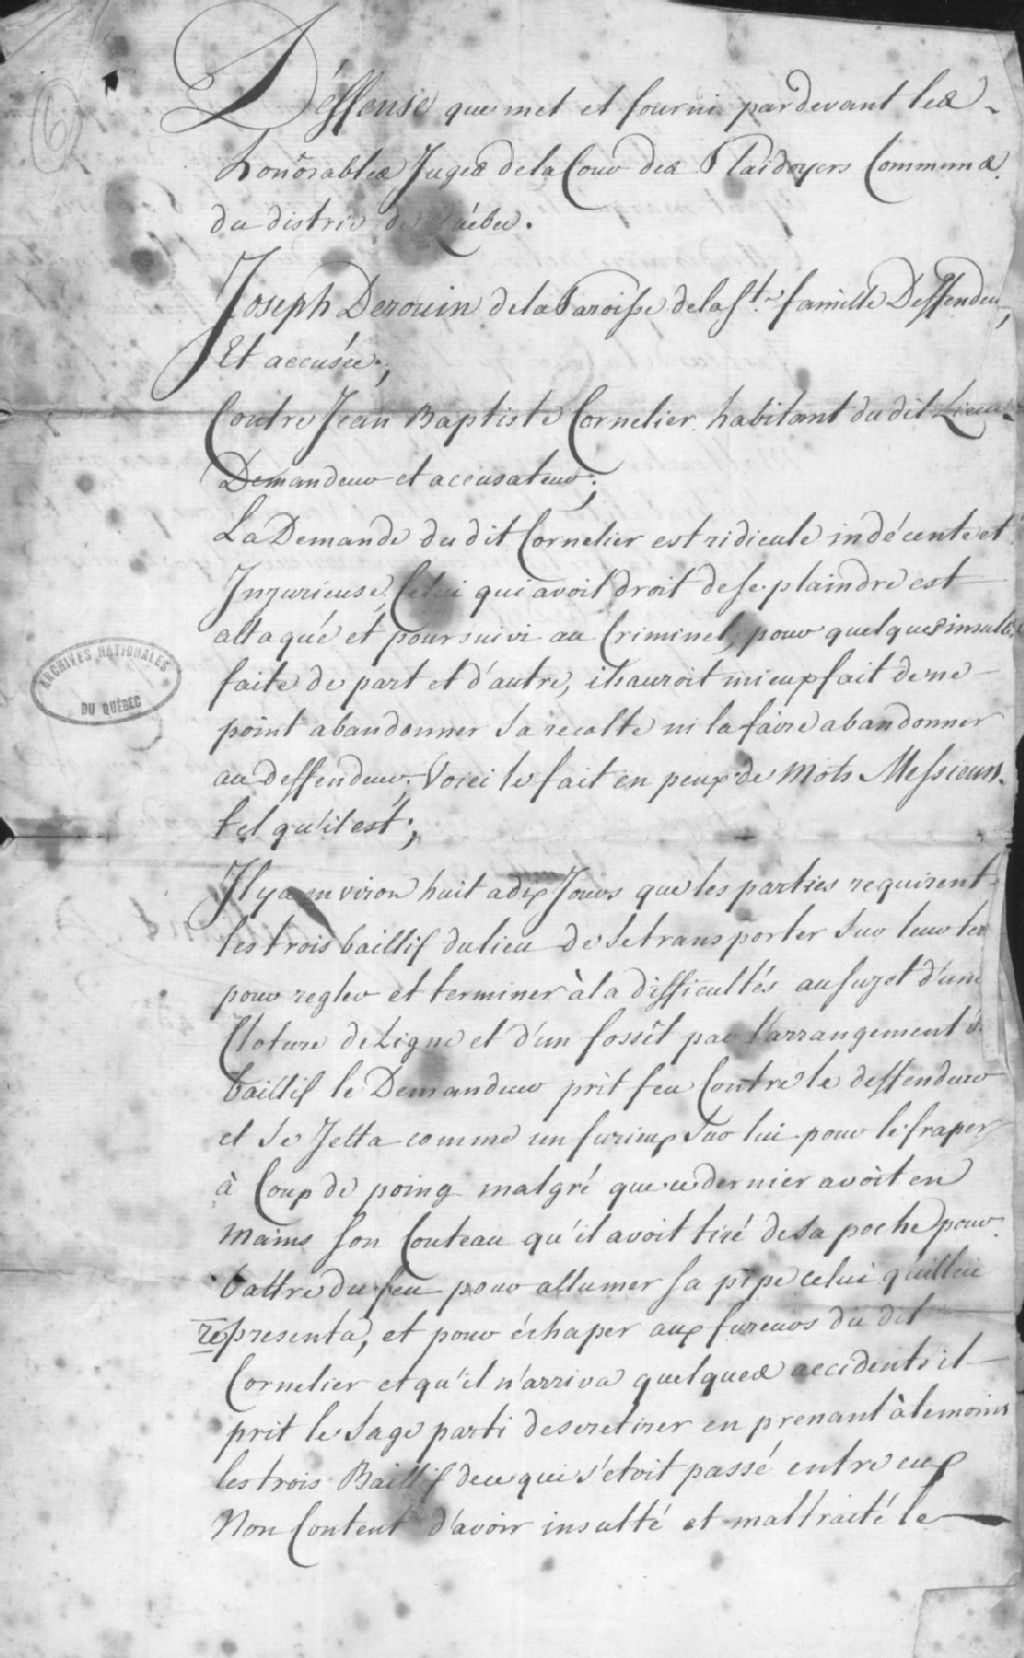 6
Déffense que met et fourni pardevant les
honôrables Juges de la Cour des Plaidoyers Communs
du district de Québec.
Joseph Derouin de la Paroisse de la Ste famille Deffendeur,
Et accusée;
Contre Jean Baptiste Cornelier habitant du dit Lieu
Demandeur et accusateur;
La Demande du dit Cornelier est ridicule indécente et
Injurieuse, Celui qui avoit droit de se plaindre est
attaqué et poursuivi au Criminel, pour quelques insultes
faite de part et d'autre, il auroit mieux fait de ne
point abandonner sa recolte ni la faire abandonner
au deffendeur, Voici le fait en peux de Mots Messieurs
tel qu'il est;
Il y a environ huit a dix Jours que les parties requirent
les trois baillif du lieu de se transporter sur leur
pour regler et terminer à la difficultés au sujet d'une
Cloture de Ligne et d'un fossêt par l'arrangement
baillif le Demandeur prit feu Contre le deffendeur
et se Jetta comme un furieux sur lui pour le fraper
à Coup de poing malgré que ce dernier avoit en
mains son Couteau qu'il avoit tiré de sa poche pour
battre du feu pour allumer sa pipe celui qu'il lui
representa, et pour échaper aux fureurs du dit
Cornelier et qu'il n'arriva quelques accidents il
prit le sage parti de se retirer en prenant à temoins
les trois Baillif de ce qui s'etoit passé entre eux
Non Content d'avoir insulté et maltraité le
ARCHIVES NATIONALES
DU QUÉBEC